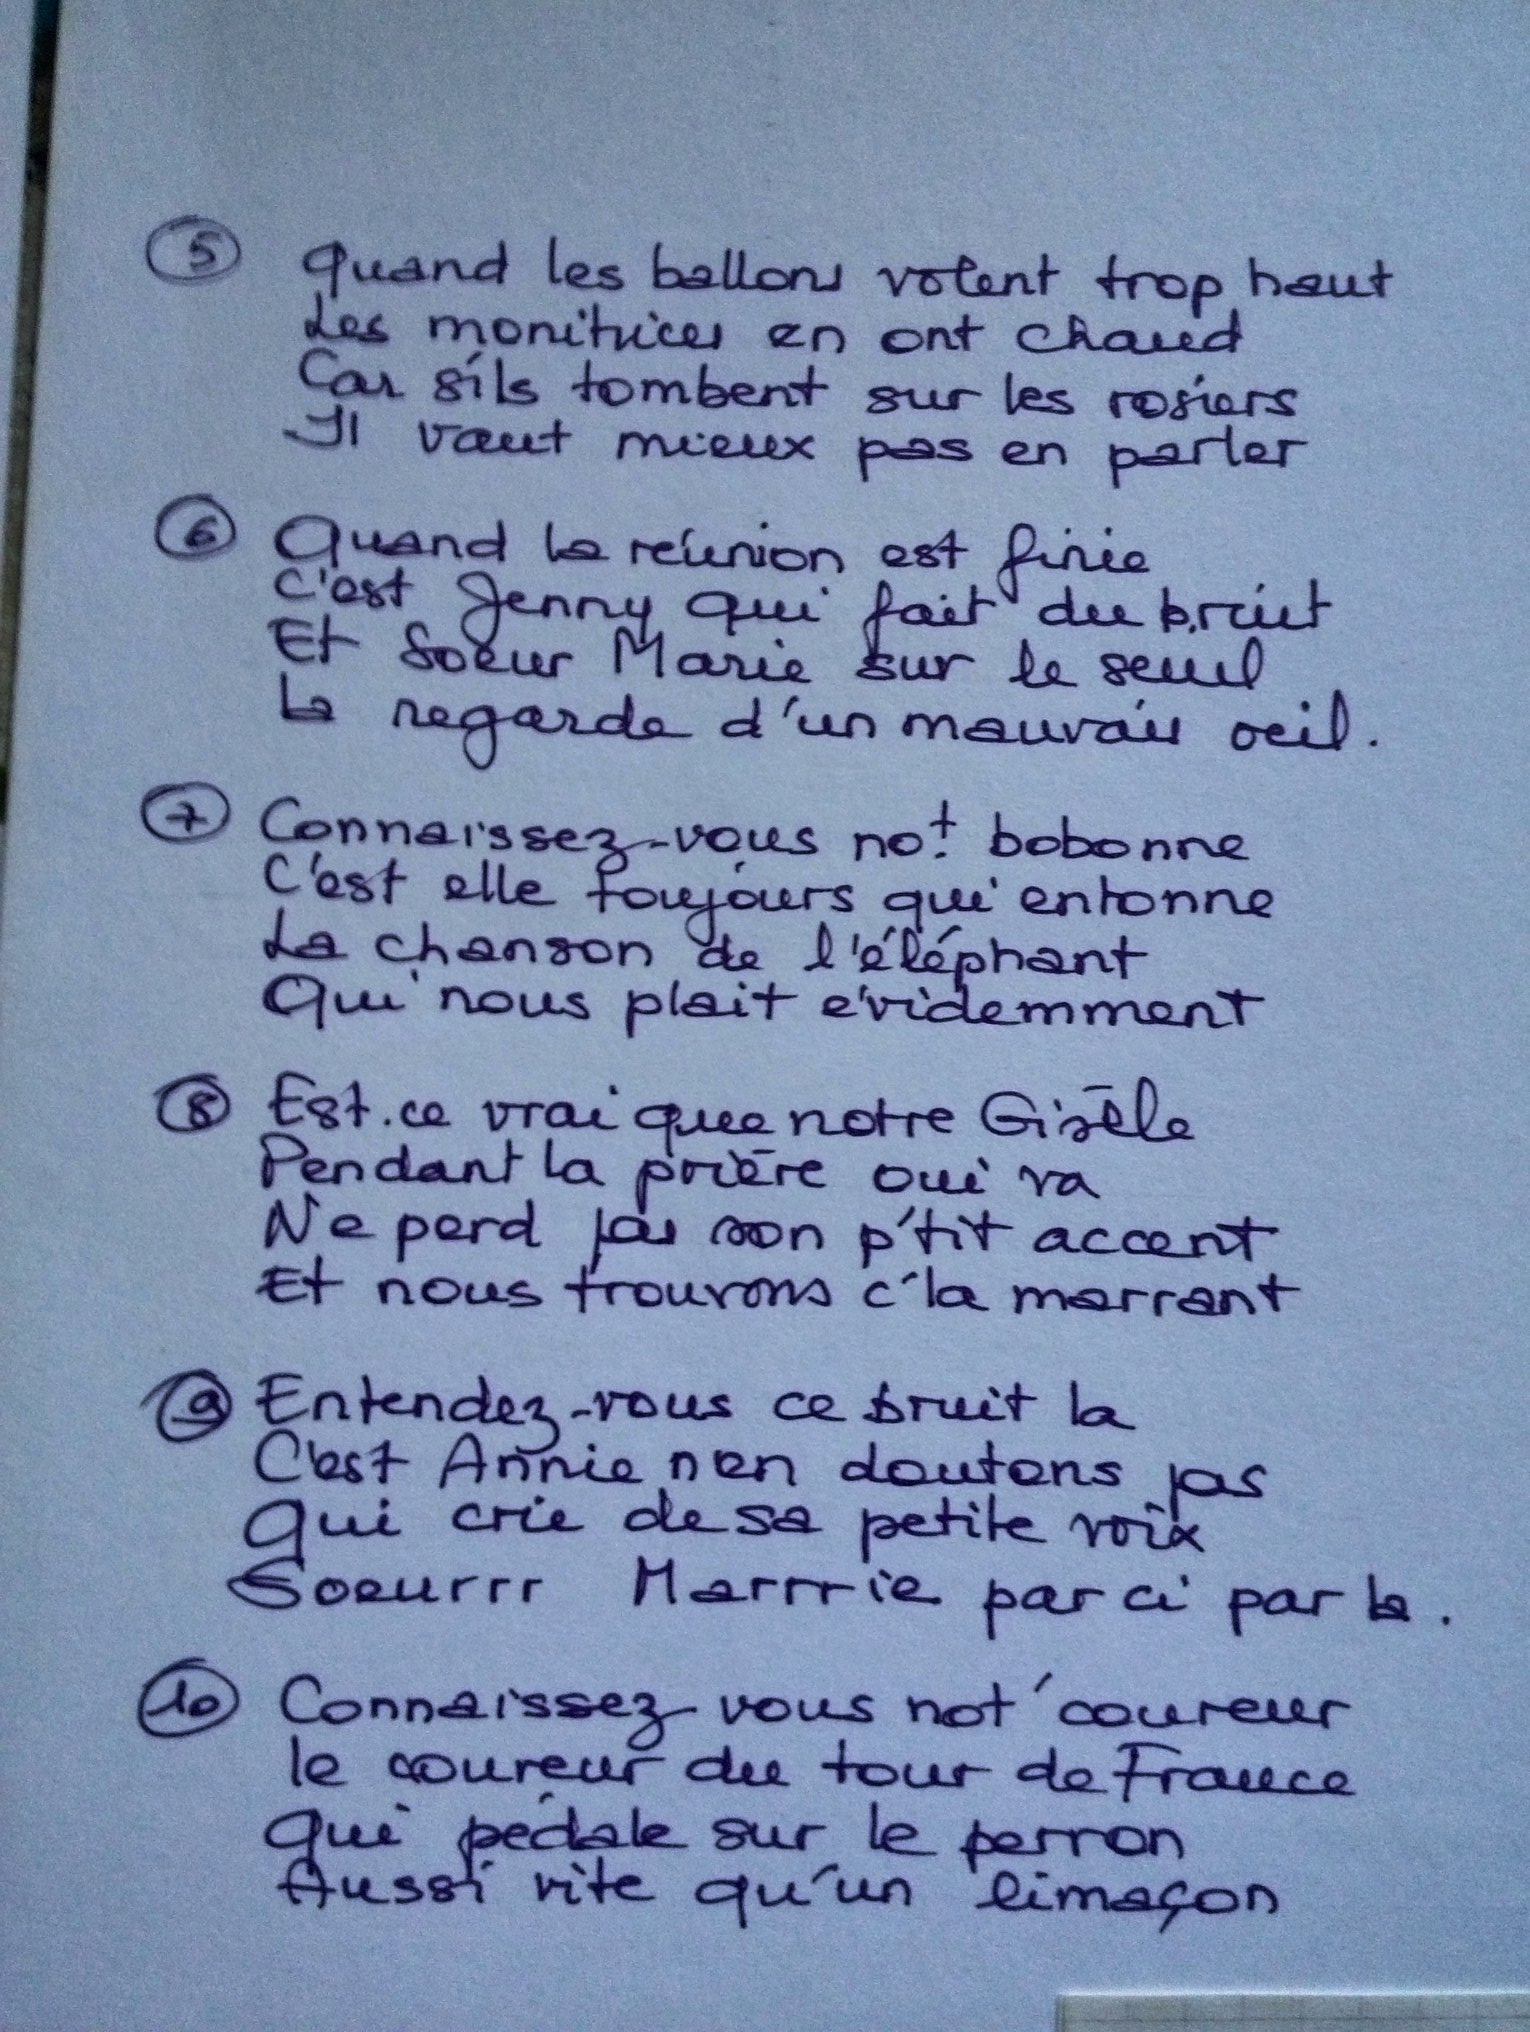 5 Quand les ballons volent trop haut
Les monitrices en ont chaud
Car s'ils tombent sur les rosiers
Il vaut mieux pas en parler
6 Quand la réunion est finie
C'est Jenny qui fait du bruit
Et Soeur Marie sur le seuil
La regarde d'un mauvais oeil.
7 Connaissez-vous not' bobonne
C'est elle toujours qui entonne
La chanson de l'éléphant
Qui nous plait évidemment
8 Est-ce vrai que notre Gisèle
Pendant la prière oui va
Ne perd pas son p'tit accent
Et nous trouvons c'la marrant
9 Entendez-vous ce bruit la
C'est Annie n'en doutons pas
Qui crie de sa petite voix
Soeurrr Marrrie par ci par la.
10 Connaissez-vous not' coureur
le coureur du tour de France
Qui pédale sur le perron
Aussi vite qu'un limaçon